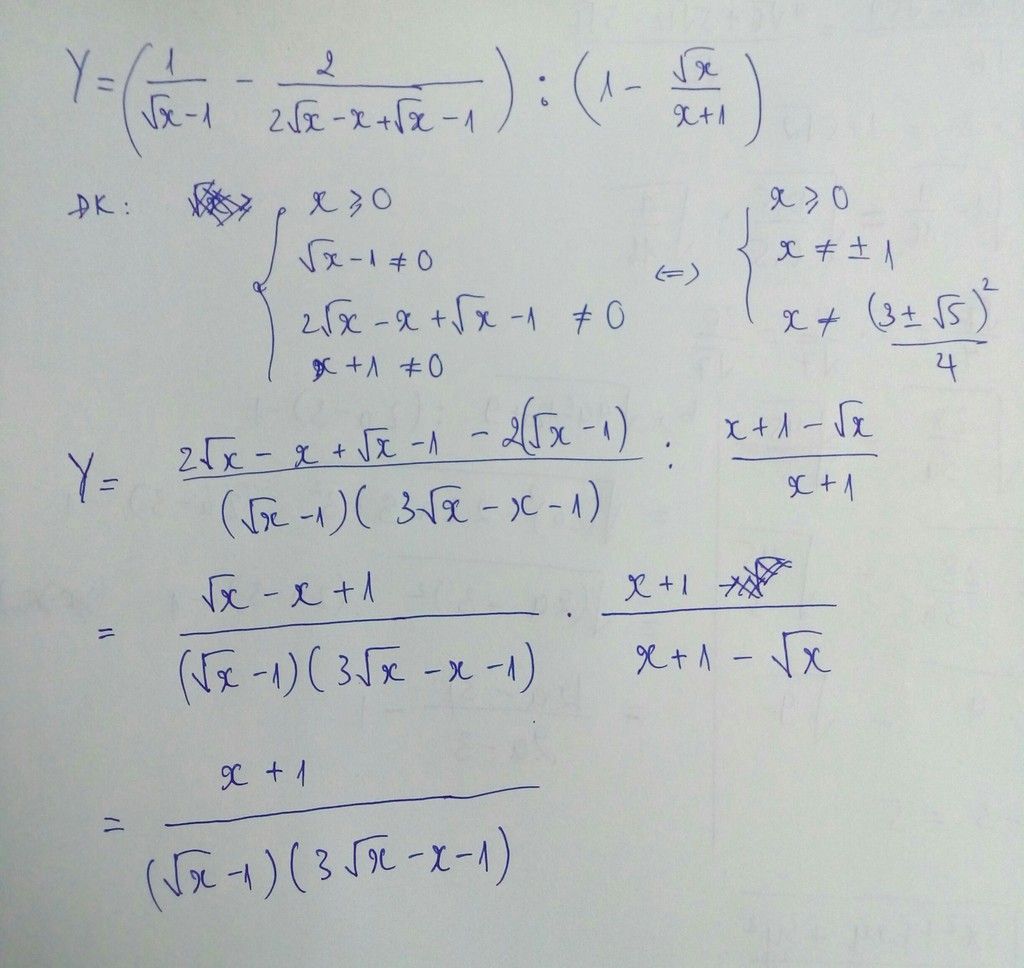 Y = (1/(√x - 1) - 2/(2√x - x + √x - 1)) : (1 - √x/(x+1))
ĐK: { x ≥ 0
√x - 1 ≠ 0
2√x - x + √x - 1 ≠ 0
x + 1 ≠ 0
<=> { x ≥ 0
x ≠ ± 1
x ≠ (3 ± √5)²/4
Y = (2√x - x + √x - 1 - 2(√x - 1))/((√x - 1)(3√x - x - 1)) : (x + 1 - √x)/(x + 1)
= (√x - x + 1)/((√x - 1)(3√x - x - 1)) . (x + 1)/(x + 1 - √x)
= (x + 1)/((√x - 1)(3√x - x - 1))